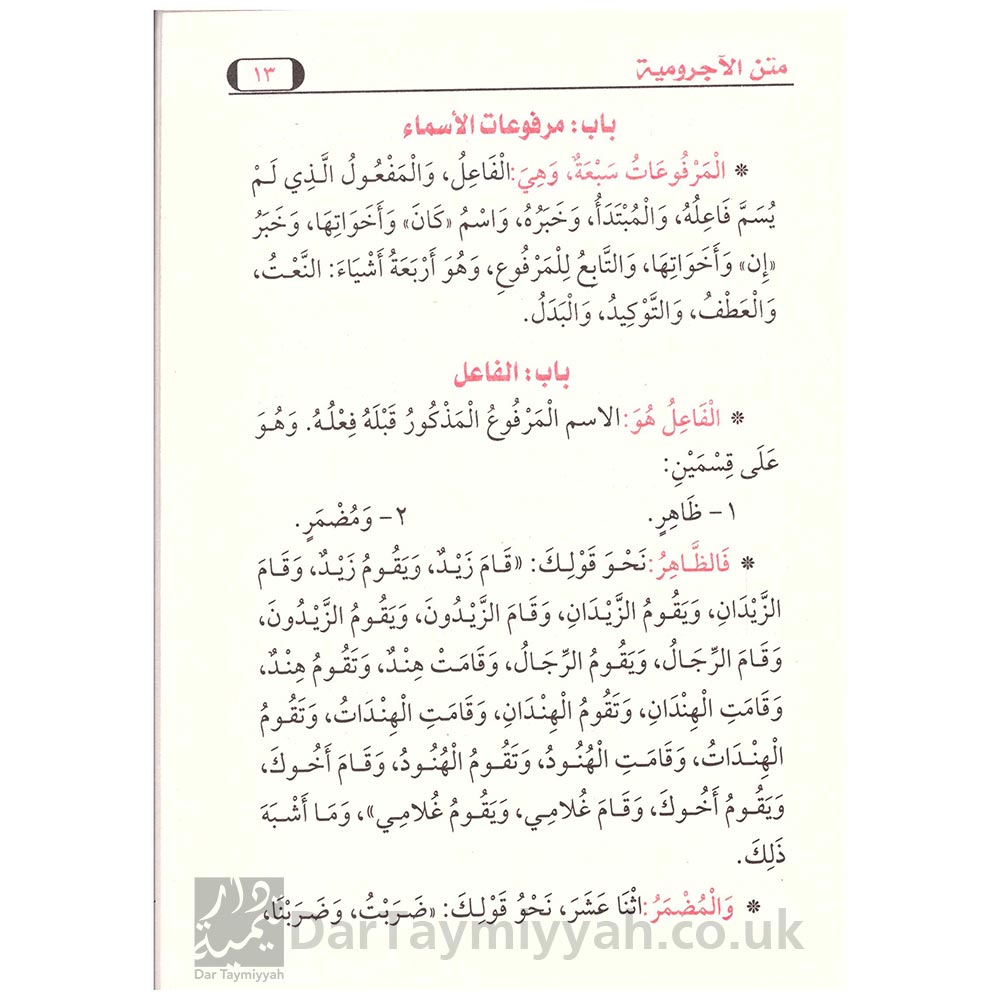 متن الآجرومية
١٣
باب: مرفوعات الأسماء
* الْمَرْفُوعَاتُ سَبْعَةٌ، وَهِيَ: الْفَاعِلُ، وَالْمَفْعُولُ الَّذِي لَمْ
يُسَمَّ فَاعِلُهُ، وَالْمُبْتَدَأُ، وَخَبَرُهُ، وَاسْمُ «كَانَ» وَأَخَوَاتِهَا، وَخَبَرُ
«إِن» وَأَخَوَاتِهَا، وَالتَّابِعُ لِلْمَرْفُوعِ، وَهُوَ أَرْبَعَةُ أَشْيَاءَ: النَّعْتُ،
وَالْعَطْفُ، وَالتَّوْكِيدُ، وَالْبَدَلُ.
باب: الفاعل
* الْفَاعِلُ هُوَ: الاسم الْمَرْفُوعُ الْمَذْكُورُ قَبْلَهُ فِعْلُهُ. وَهُوَ
عَلَى قِسْمَيْنِ:
١- ظَاهِرٍ. ٢- وَمُضْمَرٍ.
* فَالظَّاهِرُ: نَحْوَ قَوْلِكَ: «قَامَ زَيْدٌ، وَيَقُومُ زَيْدٌ، وَقَامَ
الزَّيْدَانِ، وَيَقُومُ الزَّيْدَانِ، وَقَامَ الزَّيْدُونَ، وَيَقُومُ الزَّيْدُونَ،
وَقَامَ الرِّجَالُ، وَيَقُومُ الرِّجَالُ، وَقَامَتْ هِنْدٌ، وَتَقُومُ هِنْدٌ،
وَقَامَتِ الْهِنْدَانِ، وَتَقُومُ الْهِنْدَانِ، وَقَامَتِ الْهِنْدَاتُ، وَتَقُومُ
الْهِنْدَاتُ، وَقَامَتِ الْهُنُودُ، وَتَقُومُ الْهُنُودُ، وَقَامَ أَخُوكَ،
وَيَقُومُ أَخُوكَ، وَقَامَ غُلامِي، وَيَقُومُ غُلامِي»، وَمَا أَشْبَهَ
ذَلِكَ.
* وَالْمُضْمَرُ: اثْنَا عَشَرَ، نَحْوُ قَوْلِكَ: «ضَرَبْتُ، وَضَرَبْنَا،
دار تيمية
Dar Taymiyyah
DarTaymiyyah.co.uk